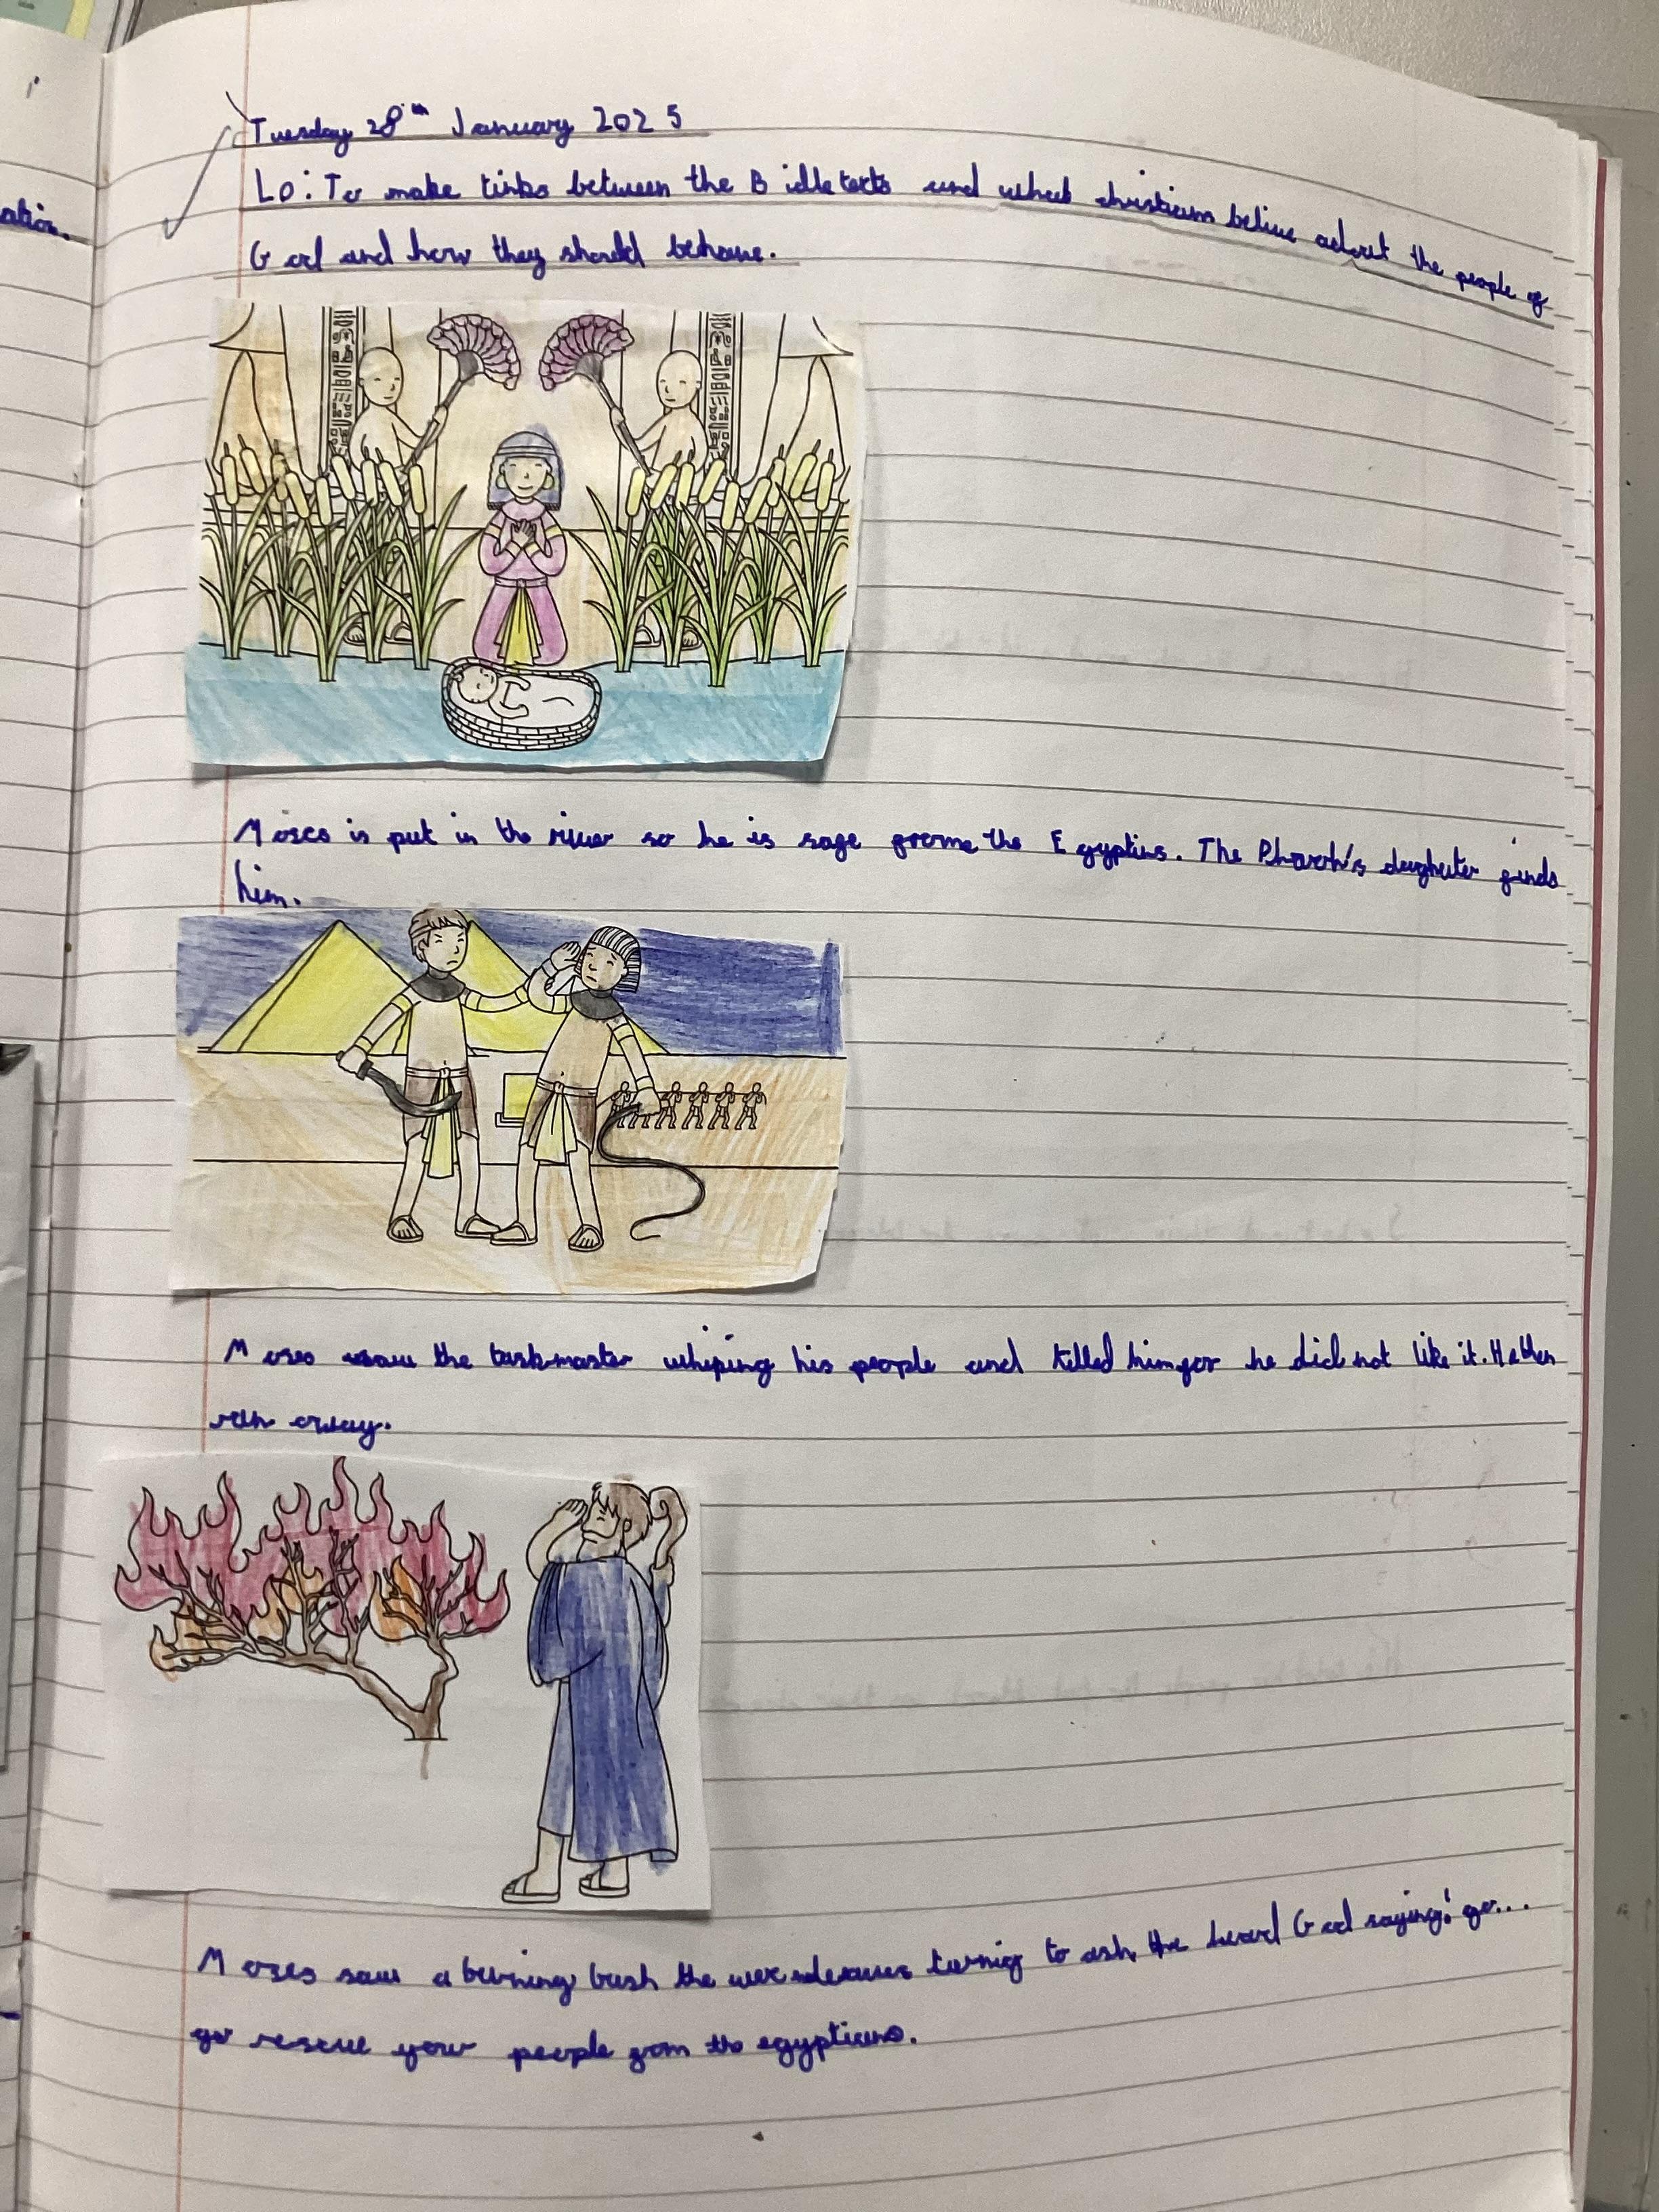 ation.
Tuesday 28th January 2025
Lo: To make links between the Bible texts and what christians belive about the people of
God and how they should behave.
Moses is put in the river so he is safe frome the Egyptins. The Pharoh's daughter finds
him.
Moses saw the taskmaster whiping his people and killed him for he did not like it. He then
ran away.
Moses saw a burning bush the wer turnig to ash, the heard God saying: go...
go rescue your people from the egyptians.